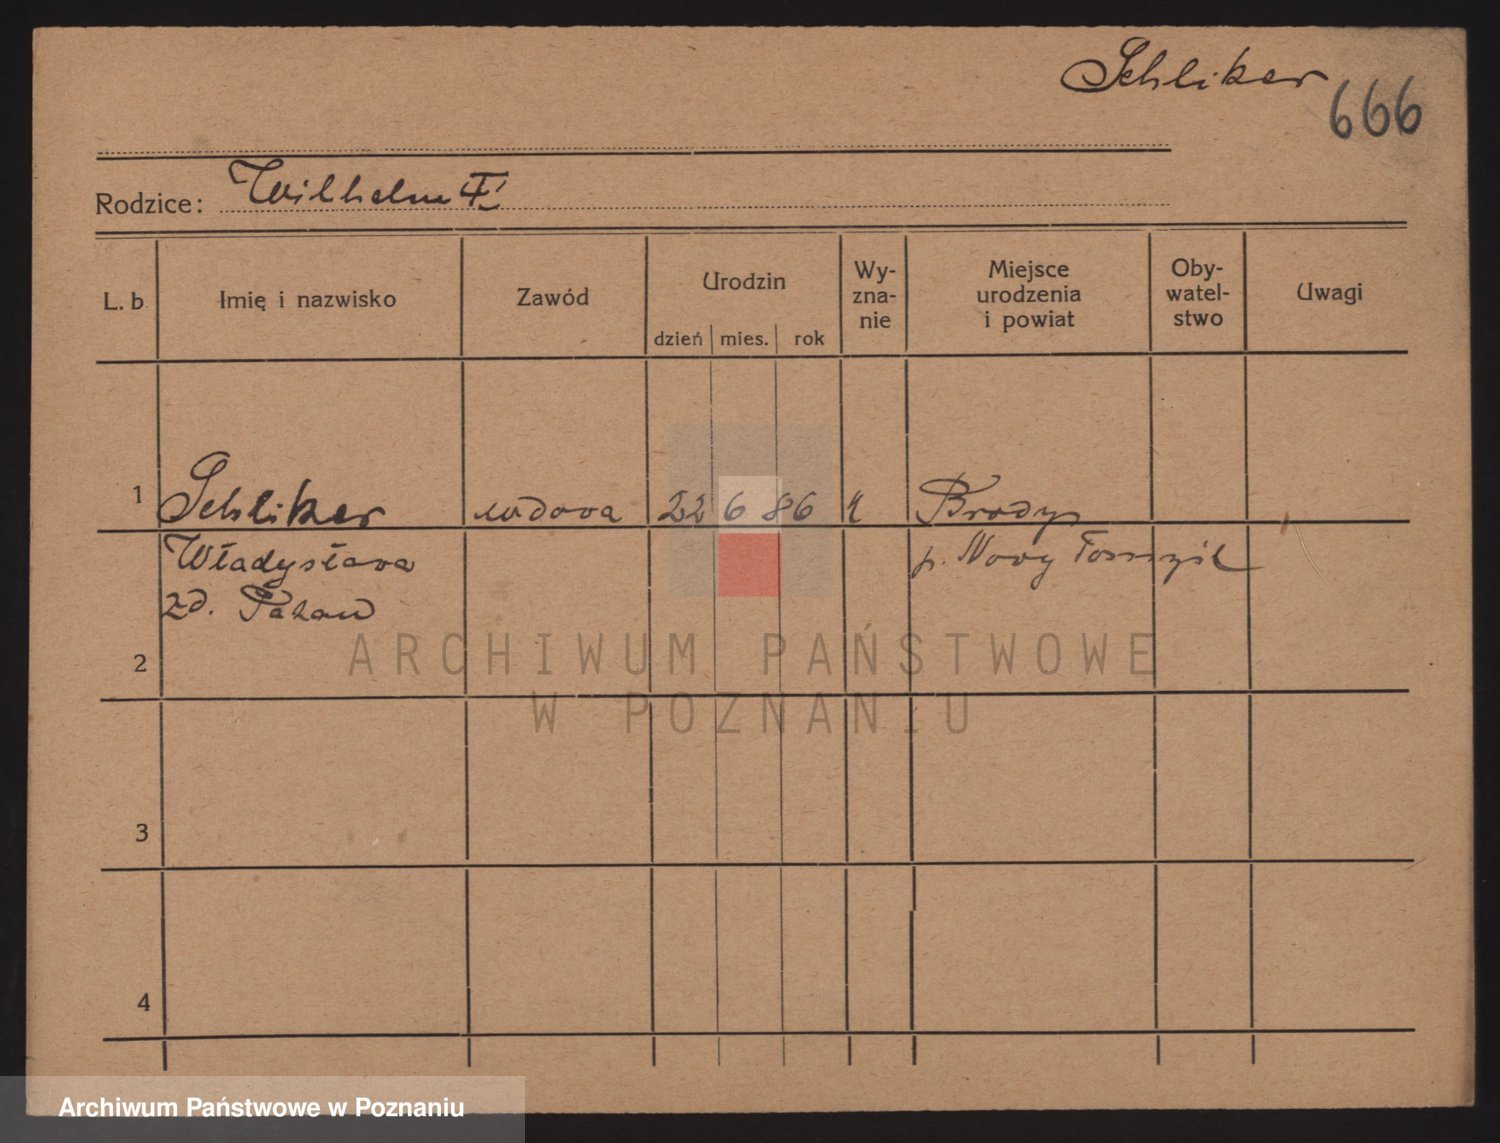 Schliker
666
Rodzice: Wilhelm
L. b Imię i nazwisko Zawód Urodzin dzień mies. rok Wy-zna-nie Miejsce urodzenia i powiat Oby-watel-stwo Uwagi
1 Schliker wdowa 22 6 86 Brody
Władysława p. Nowy Tomyśl
zd.
2
3
4
ARCHIWUM PAŃSTWOWE
W POZNANIU
Archiwum Państwowe w Poznaniu